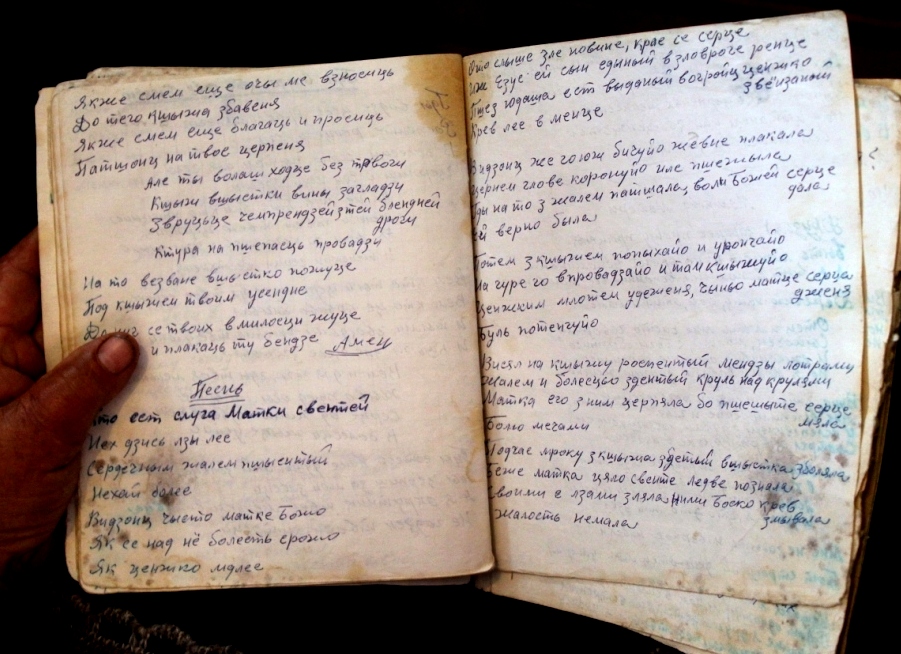 Якже смем еще очы ме взносиць
До тего кшыжа збавеня
Якже смем еще благаць и просиць
Патшонц на твое церпеня
Але ты волаш ходце без трвоги
Кшыж вшыстки вины загладзи
Звруцьце чемпрендзей з тей блендней
дроги
Ктура на пшепасць провадзи
На то везване вшыстко пожуце
Под кшыжем твоим усендне
До ног се твоих в милосци жуце
и плакаць ту бендзе Амен
Песнь
кто ест слуга Матки свентей
Нех дзись лзы лее
Сердечным жалем пшыентый
Нехай более
Видзонц чысто матке Божо
Як се над нё болесть срожо
Як ценжко мдлее
Ото слыше зле новине, крае се серце
иже Езус ей сын единый в зловроге ренце
Пшез юдаша ест выданый в огройцу ценжко
звёнзаный
Крев лее в менце
Видзонц же го юж бичуйо жевне плакала
цернем глове коронуйо иле пшежыла
гды на то з жалем патшала, воли Божей серце
дала
ей верно была
Потем з кшыжем попыхайо и урончайо
на гуре го впровадзайо и там кшыжуйо
ценжким млотем удеженя, чыньо матце серца
дженя
Буль потенгуйо
Висял на кшыжу роспентый мендзы лотрами
жалем и болесцьо здентый круль над крулями
Матка его з ним церпяла бо пшешыте серце
мяла
Болю мечами
Подчас мроку з кшыжа здетый вшыстка зболяла
Беже матка цяло свенте ледве познала
Своими е лзами зляла ними Боско крев
змывала
Жалость немала